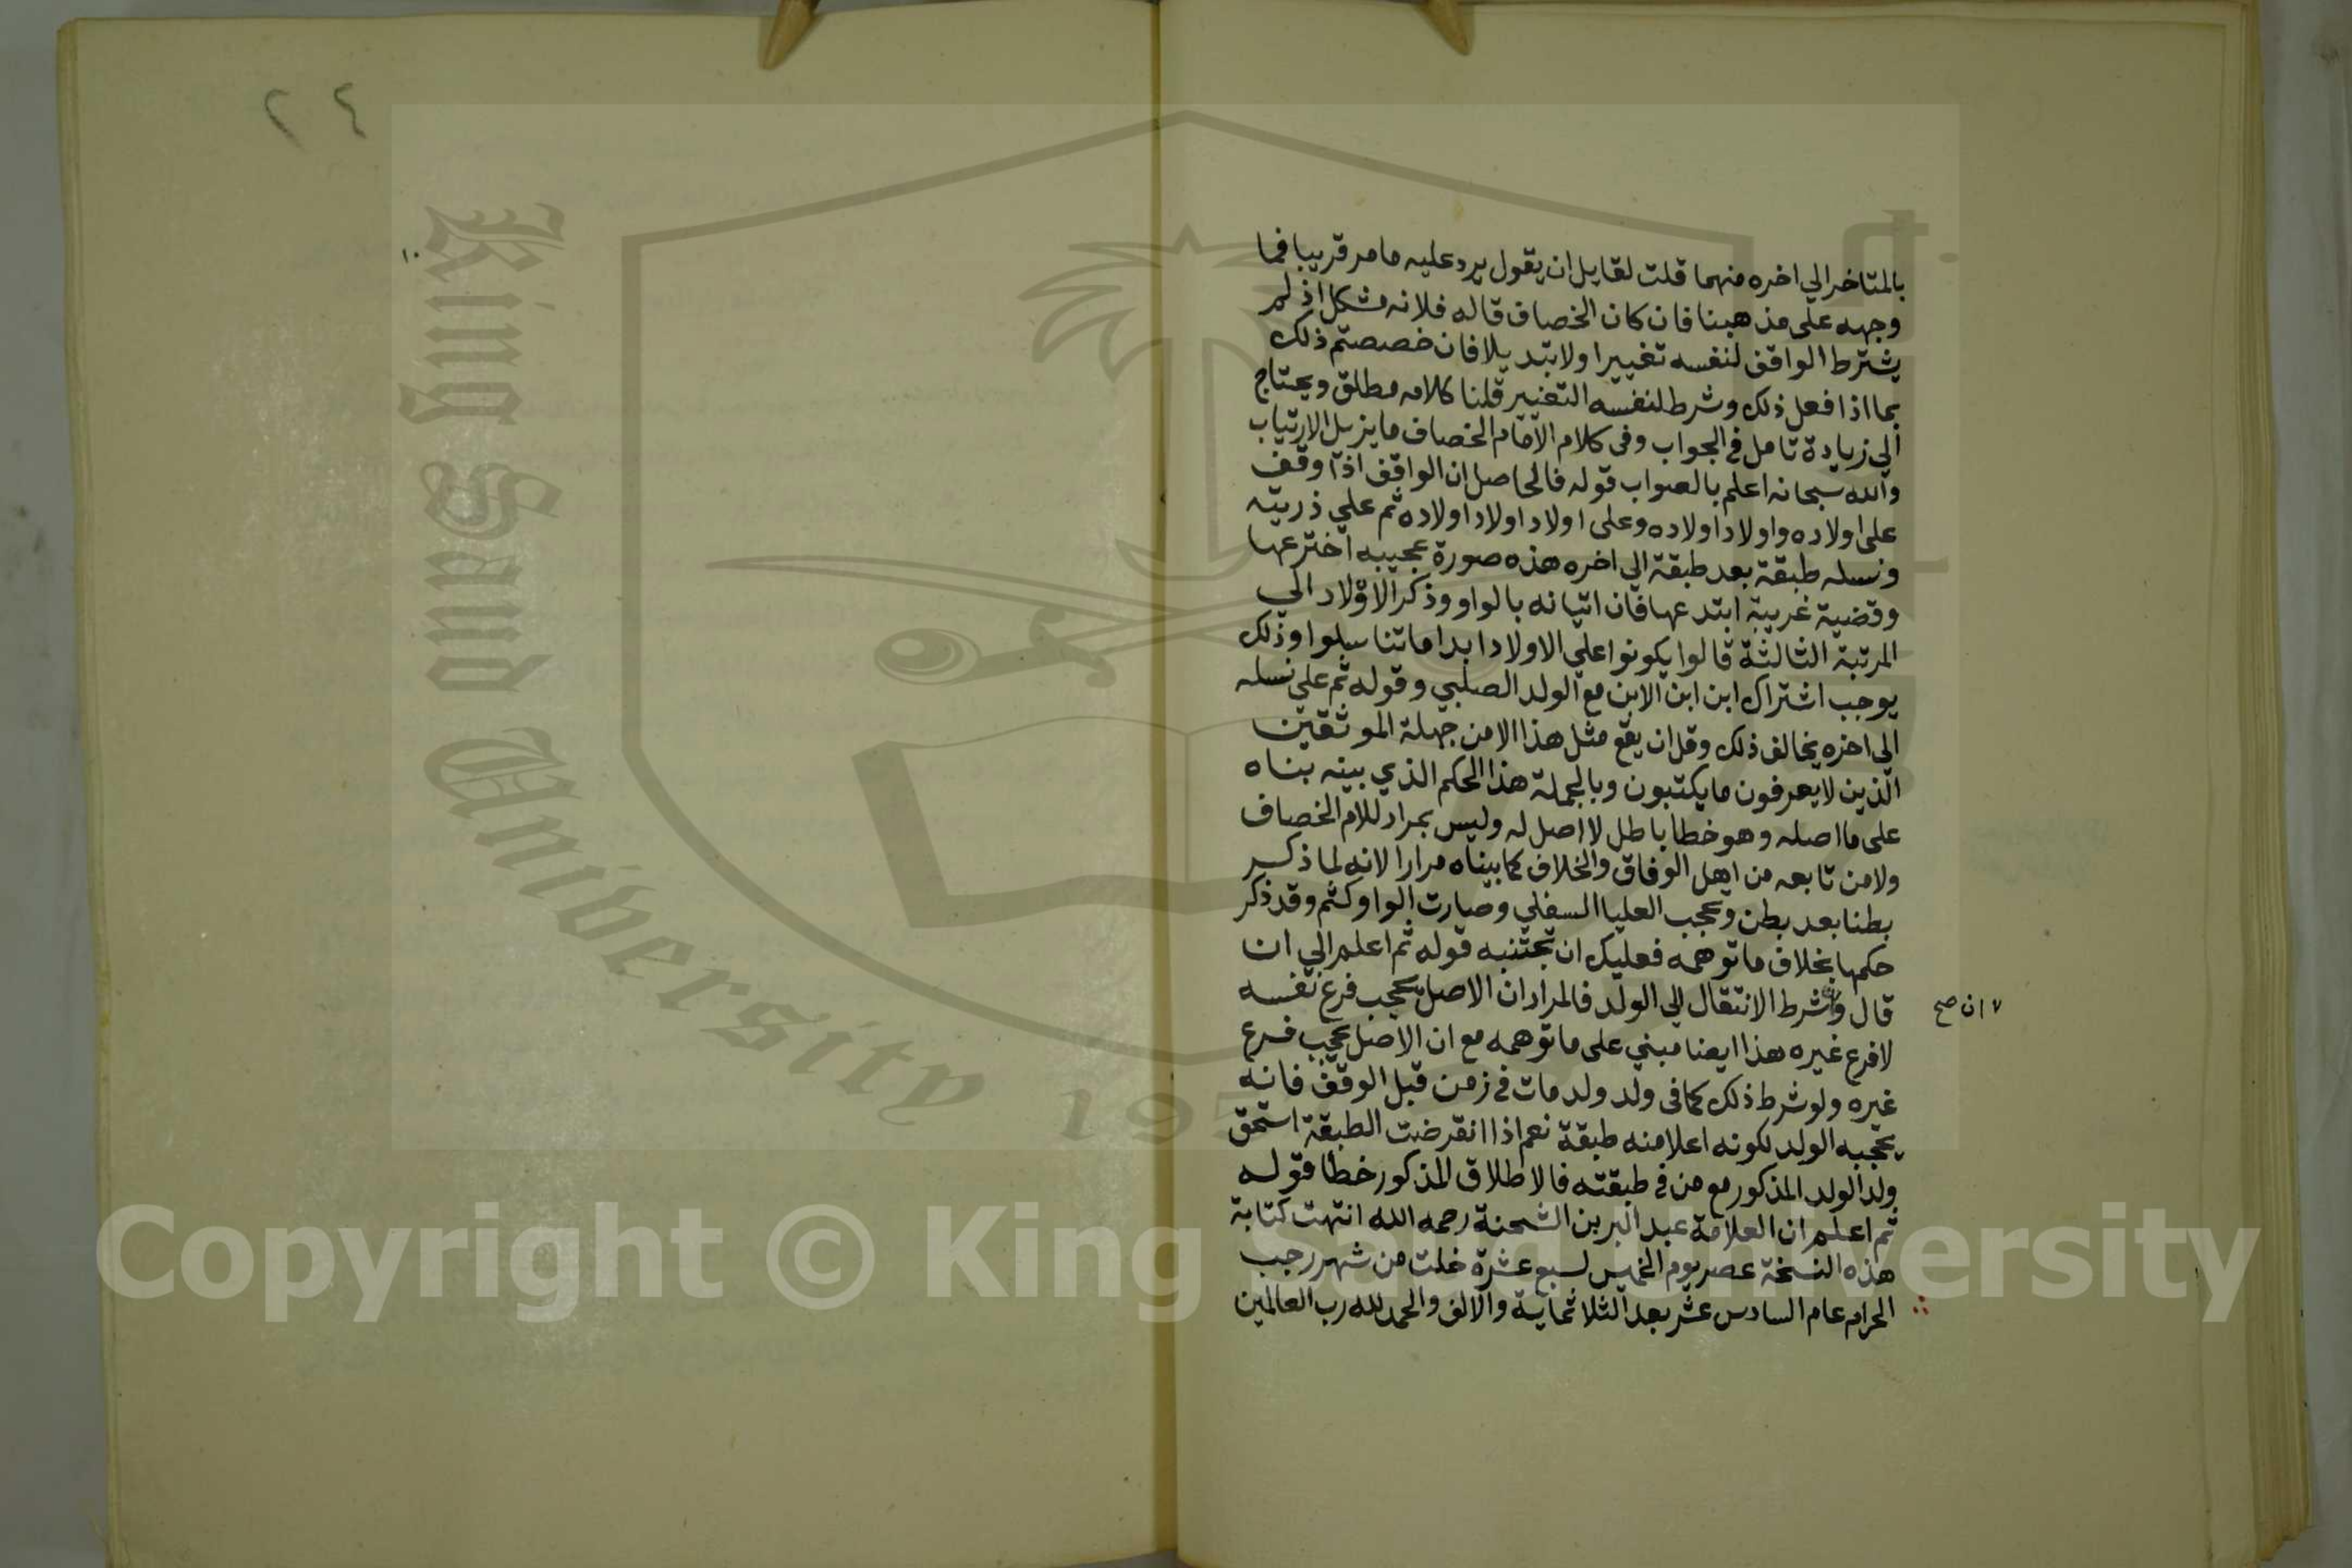 بالمتاخر الي اخره منهما قلت لقايل ان يقول يرد عليه ما مر قريبا فما
وجهه على مذهبنا فان كان الخصاف قاله فلانه مشكل اذ لم
يشترط الواقف لنفسه تغييرا ولا تبديلا فان خصصتم ذلك
بما اذا فعل ذلك وشرط لنفسه التغيير قلنا كلامه مطلق ويحتاج
الي زيادة تامل في الجواب وفي كلام الامام الخصاف ما يزيل الارتياب
والله سبحانه اعلم بالصواب قوله فالحاصل ان الواقف اذا وقف
على اولاده واولاد اولاده وعلى اولاد اولاد اولاده ثم علي ذريته
ونسله طبقة بعد طبقة الي اخره هذه صورة عجيبه اخترعها
وقضية غريبة ابتدعها فان اتيانه بالواو وذكر الاولاد الي
المرتبة الثالثة قالوا يكونوا علي الاولاد ابدا ما تناسلوا وذلك
يوجب اشتراك ابن ابن الابن مع الولد الصلبي وقوله ثم علي نسله
الي اخره يخالف ذلك وقل ان يقع مثل هذا الا من جهلة الموثقين
الذين لا يعرفون ما يكتبون وبالجملة هذا الحكم الذي بينه بناه
على ما اصله وهو خطا باطل لا اصل له وليس بمراد للام الخصاف
ولا من تابعه من اهل الوفاق والخلاف كما بيناه مرارا لانه لما ذكر
بطنا بعد بطن وتحجب العليا السفلي وصارت الواو كثم وقد ذكر
حكمها بخلاف ما توهمه فعليك ان تجتنبه قوله ثم اعلم الي ان
قال وان شرط الانتقال الي الولد فالمراد ان الاصل يحجب فرع نفسه
لا فرع غيره هذا ايضا مبني على ما توهمه مع ان الاصل يحجب فرع
غيره ولو شرط ذلك كما في ولد ولد مات في زمن قبل الوقف فانه
يحجبه الولد لكونه اعلا منه طبقة نعم اذا انقرضت الطبقة استحق
ولد الولد المذكور مع من في طبقته فالاطلاق المذكور خطا قوله
ثم اعلم ان العلامة عبد البر بن الشحنة رحمه الله انتهت كتابة
هذه النسخة عصر يوم الخميس لسبع عشرة خلت من شهر رجب
الحرام عام السادس عشر بعد الثلاثماية والالف والحمد لله رب العالمين
ان صح
٢٤
King Saud University
195
Copyright © King Saud University